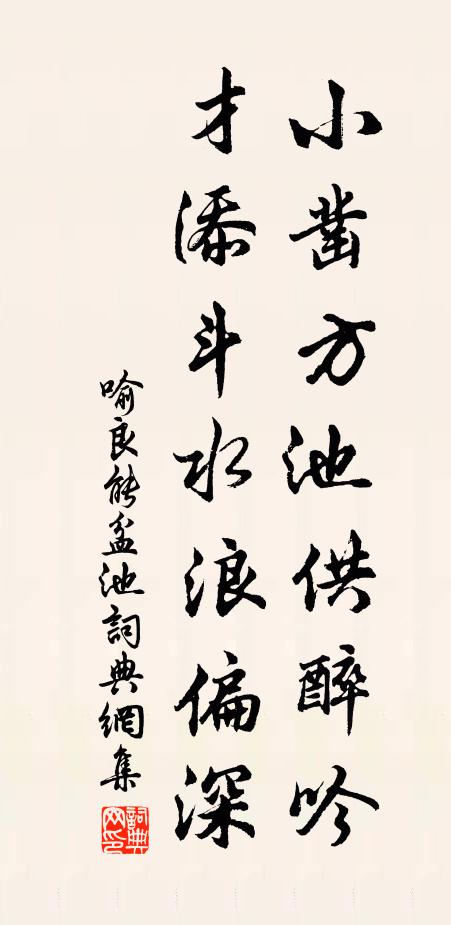 小鑿方池供醉吟
才添斗水浪偏深
喻良能盆池詞典網集
詞典网印